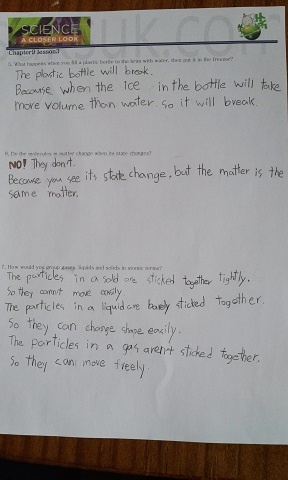 SCIENCE
A CLOSER LOOK
Chapter9 lesson3
5. What happens when you fill a plastic bottle to the brim with water, then put it in the freezer?
The plastic bottle will break.
Because when the ice in the bottle will take
more volume than water so it will break.
6. Do the molecules in matter change when its state changes?
NO! They don't.
Because you see its state change, but the matter is the
same matter.
7. How would you group gases, liquids and solids in atomic terms?
The particles in a solid are sticked together tightly.
So they cannot move easily
The particles in a liquid are barely sticked together.
So they can change shape easily.
The particles in a gas aren't sticked together.
So they can move freely.